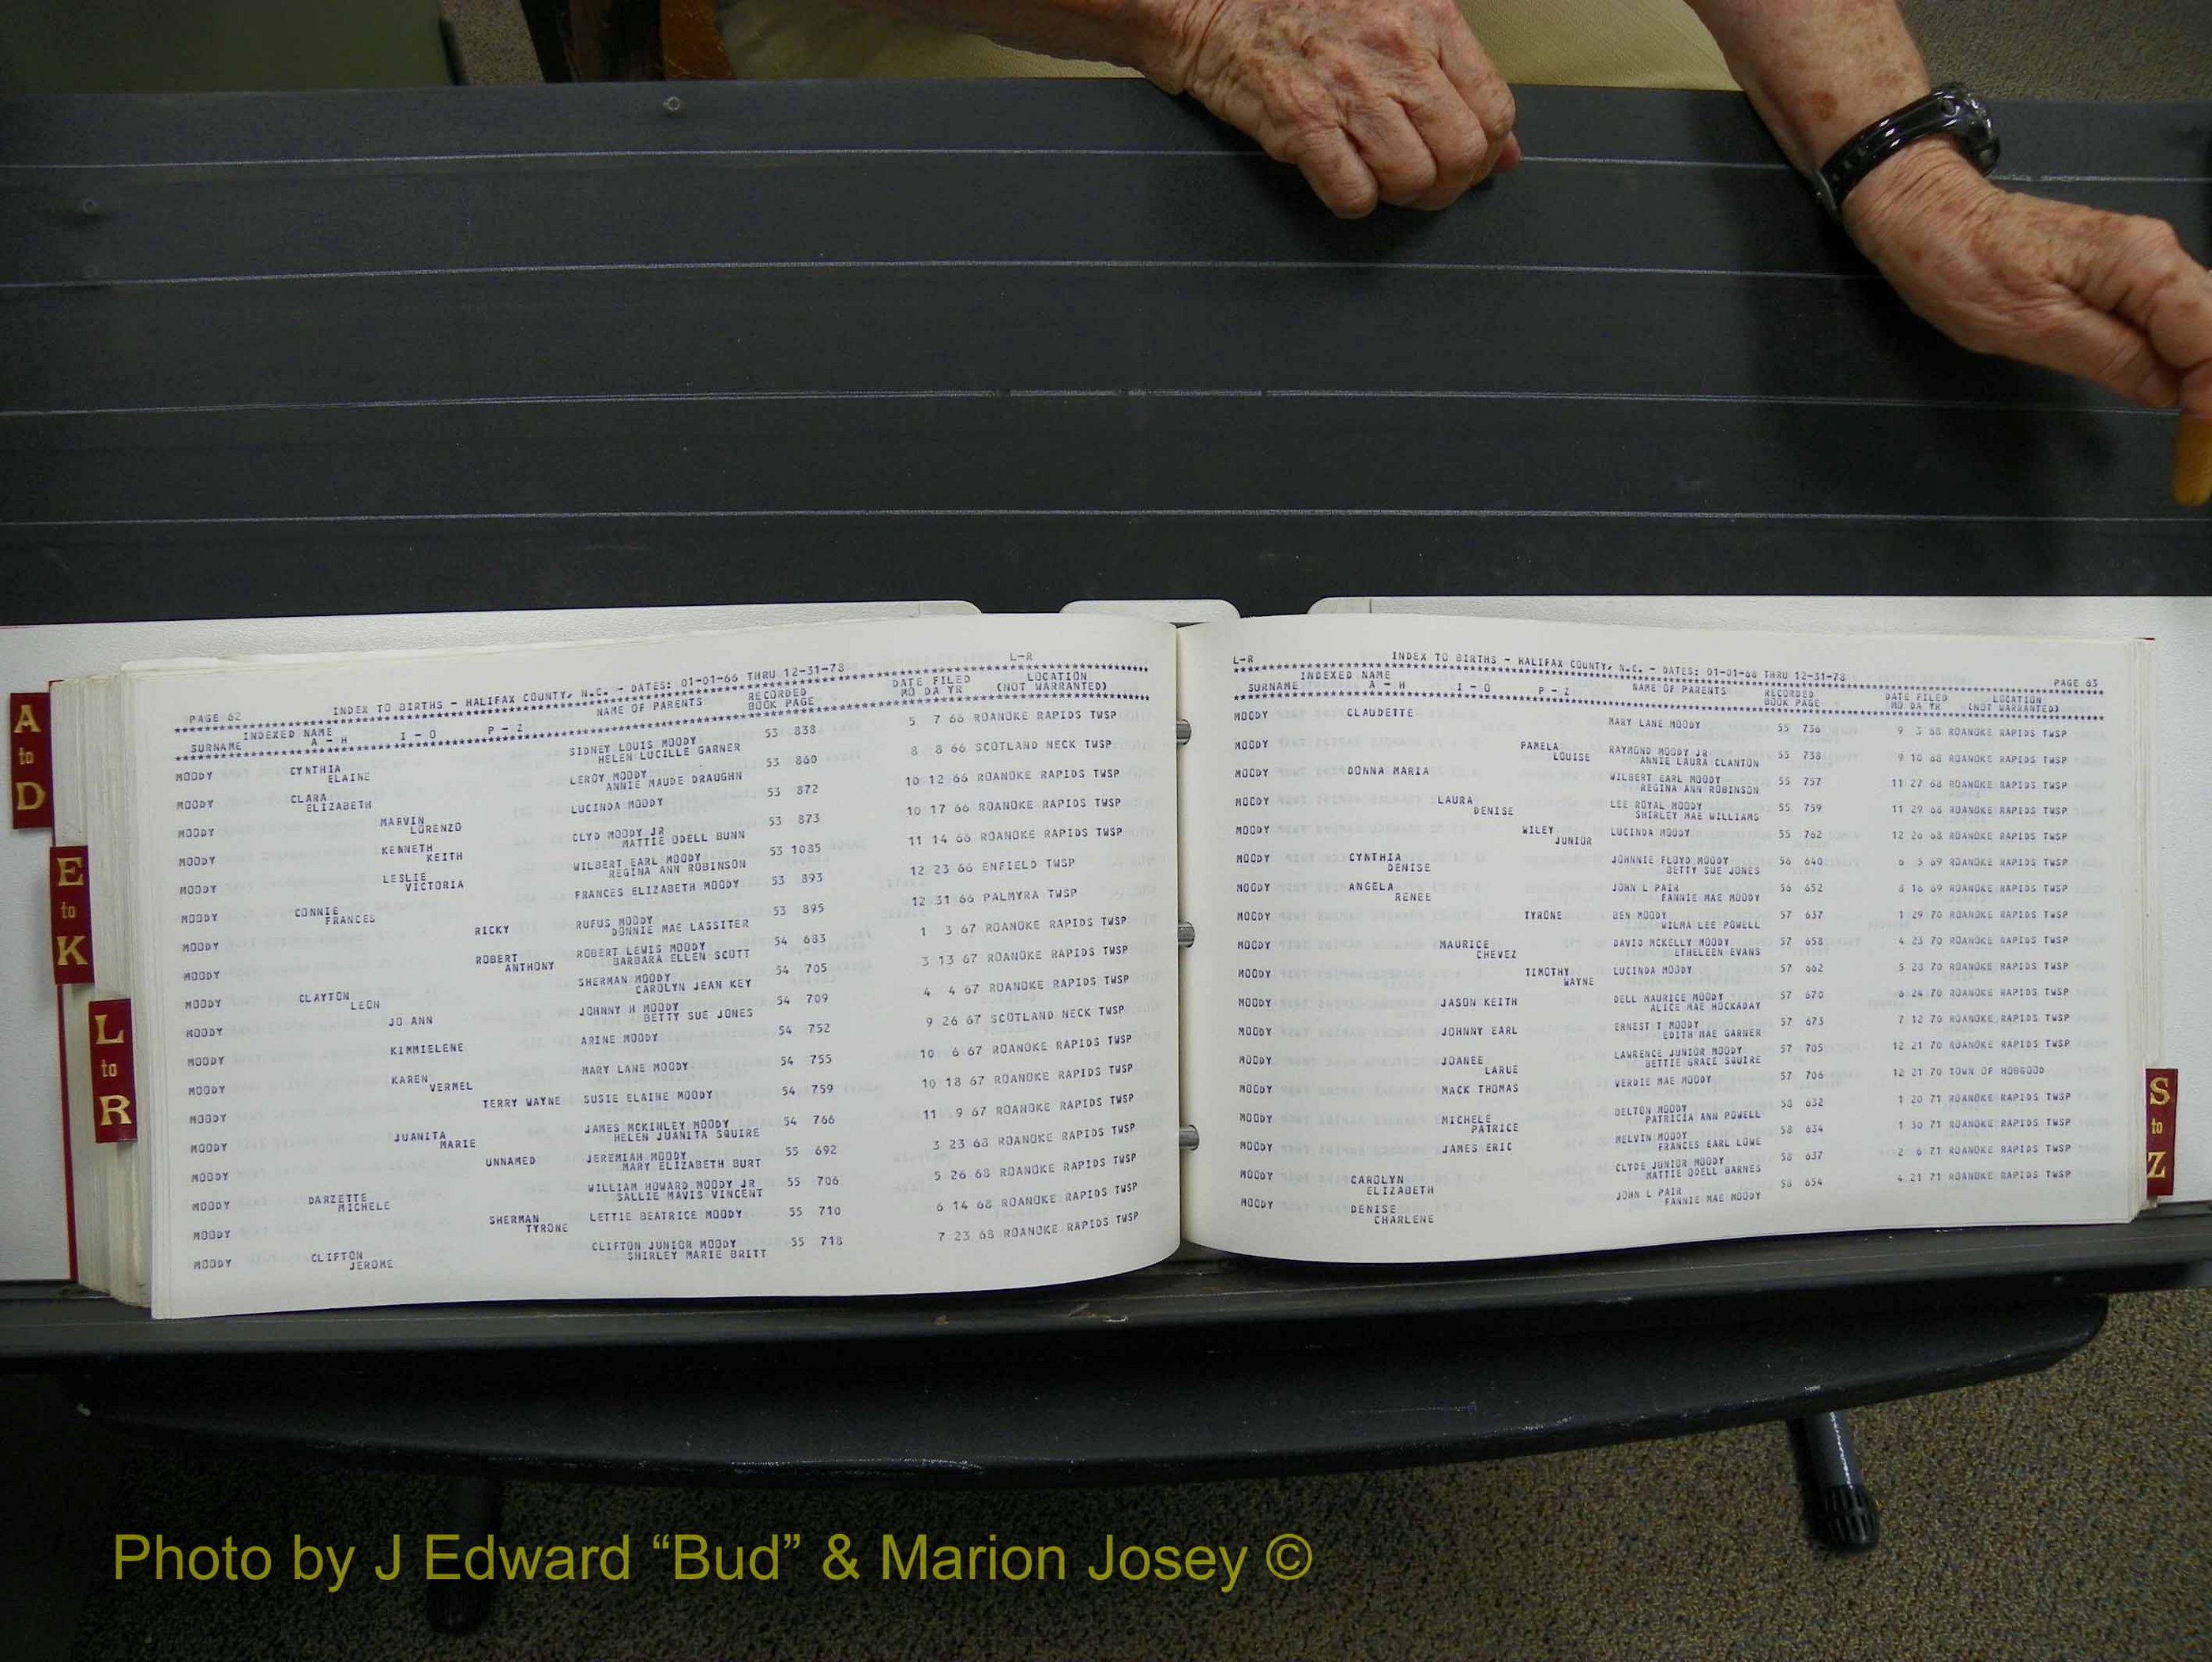 A
to
D
E
to
K
L
to
R
L-R
PAGE 62 INDEX TO BIRTHS - HALIFAX COUNTY, N.C. - DATES: 01-01-66 THRU 12-31-78
INDEXED NAME NAME OF PARENTS RECORDED DATE FILED LOCATION
SURNAME A - H I - O P - Z BOOK PAGE MO DA YR (NOT WARRANTED)
MOODY CYNTHIA SIDNEY LOUIS MOODY 53 838 5 7 66 ROANOKE RAPIDS TWSP
ELAINE HELEN LUCILLE GARNER
MOODY CLARA LEROY MOODY 53 860 8 8 66 SCOTLAND NECK TWSP
ELIZABETH ANNIE MAUDE DRAUGHN
MOODY MARVIN LUCINDA MOODY 53 872 10 12 66 ROANOKE RAPIDS TWSP
LORENZO
MOODY KENNETH CLYD MOODY JR 53 873 10 17 66 ROANOKE RAPIDS TWSP
KEITH MATTIE ODELL BUNN
MOODY LESLIE WILBERT EARL MOODY 53 1085 11 14 66 ROANOKE RAPIDS TWSP
VICTORIA REGINA ANN ROBINSON
MOODY CONNIE FRANCES ELIZABETH MOODY 53 893 12 23 66 ENFIELD TWSP
FRANCES
MOODY RICKY RUFUS MOODY 53 895 12 31 66 PALMYRA TWSP
DONNIE MAE LASSITER
MOODY ROBERT ROBERT LEWIS MOODY 54 683 1 3 67 ROANOKE RAPIDS TWSP
ANTHONY BARBARA ELLEN SCOTT
MOODY CLAYTON SHERMAN MOODY 54 705 3 13 67 ROANOKE RAPIDS TWSP
LEON CAROLYN JEAN KEY
MOODY JO ANN JOHNNY H MOODY 54 709 4 4 67 ROANOKE RAPIDS TWSP
BETTY SUE JONES
MOODY KIMMIELENE ARINE MOODY 54 752 9 26 67 SCOTLAND NECK TWSP
MOODY KAREN MARY LANE MOODY 54 755 10 6 67 ROANOKE RAPIDS TWSP
VERMEL
MOODY TERRY WAYNE SUSIE ELAINE MOODY 54 759 10 18 67 ROANOKE RAPIDS TWSP
MOODY JUANITA JAMES MCKINLEY MOODY 54 766 11 9 67 ROANOKE RAPIDS TWSP
MARIE HELEN JUANITA SQUIRE
MOODY UNNAMED JEREMIAH MOODY 55 692 3 23 68 ROANOKE RAPIDS TWSP
MARY ELIZABETH BURT
MOODY DARZETTE WILLIAM HOWARD MOODY JR 55 706 5 26 68 ROANOKE RAPIDS TWSP
MICHELE SALLIE MAVIS VINCENT
MOODY SHERMAN LETTIE BEATRICE MOODY 55 710 6 14 68 ROANOKE RAPIDS TWSP
TYRONE
MOODY CLIFTON CLIFTON JUNIOR MOODY 55 718 7 23 68 ROANOKE RAPIDS TWSP
JEROME SHIRLEY MARIE BRITT
L-R INDEX TO BIRTHS - HALIFAX COUNTY, N.C. - DATES: 01-01-66 THRU 12-31-78 PAGE 63
INDEXED NAME NAME OF PARENTS RECORDED DATE FILED LOCATION
SURNAME A - H I - O P - Z BOOK PAGE MO DA YR (NOT WARRANTED)
MOODY CLAUDETTE MARY LANE MOODY 55 736 9 3 68 ROANOKE RAPIDS TWSP
MOODY PAMELA RAYMOND MOODY JR 55 738 9 10 68 ROANOKE RAPIDS TWSP
LOUISE ANNIE LAURA CLANTON
MOODY DONNA MARIA WILBERT EARL MOODY 55 757 11 27 68 ROANOKE RAPIDS TWSP
REGINA ANN ROBINSON
MOODY LAURA LEE ROYAL MOODY 55 759 11 29 68 ROANOKE RAPIDS TWSP
DENISE SHIRLEY MAE WILLIAMS
MOODY WILEY LUCINDA MOODY 55 762 12 26 68 ROANOKE RAPIDS TWSP
JUNIOR
MOODY CYNTHIA JOHNNIE FLOYD MOODY 56 640 6 5 69 ROANOKE RAPIDS TWSP
DENISE BETTY SUE JONES
MOODY ANGELA JOHN L PAIR 56 652 8 16 69 ROANOKE RAPIDS TWSP
RENEE FANNIE MAE MOODY
MOODY TYRONE BEN MOODY 57 637 1 29 70 ROANOKE RAPIDS TWSP
WILMA LEE POWELL
MOODY MAURICE DAVID MCKELLY MOODY 57 658 4 23 70 ROANOKE RAPIDS TWSP
CHEVEZ ETHELEEN EVANS
MOODY TIMOTHY LUCINDA MOODY 57 662 5 28 70 ROANOKE RAPIDS TWSP
WAYNE
MOODY JASON KEITH DELL MAURICE MOODY 57 670 6 24 70 ROANOKE RAPIDS TWSP
ALICE MAE HOCKADAY
MOODY JOHNNY EARL ERNEST T MOODY 57 673 7 12 70 ROANOKE RAPIDS TWSP
EDITH MAE GARNER
MOODY JOANEE LAWRENCE JUNIOR MOODY 57 705 12 21 70 ROANOKE RAPIDS TWSP
LARUE BETTIE GRACE SQUIRE
MOODY MACK THOMAS VERDIE MAE MOODY 57 706 12 21 70 TOWN OF HOBGOOD
MOODY MICHELE DELTON MOODY 58 632 1 20 71 ROANOKE RAPIDS TWSP
PATRICE PATRICIA ANN POWELL
MOODY JAMES ERIC MELVIN MOODY 58 634 1 30 71 ROANOKE RAPIDS TWSP
FRANCES EARL LOWE
MOODY CAROLYN CLYDE JUNIOR MOODY 58 637 2 6 71 ROANOKE RAPIDS TWSP
ELIZABETH MATTIE ODELL BARNES
MOODY DENISE JOHN L PAIR 58 654 4 21 71 ROANOKE RAPIDS TWSP
CHARLENE FANNIE MAE MOODY
S
to
Z
Photo by J Edward “Bud” & Marion Josey ©